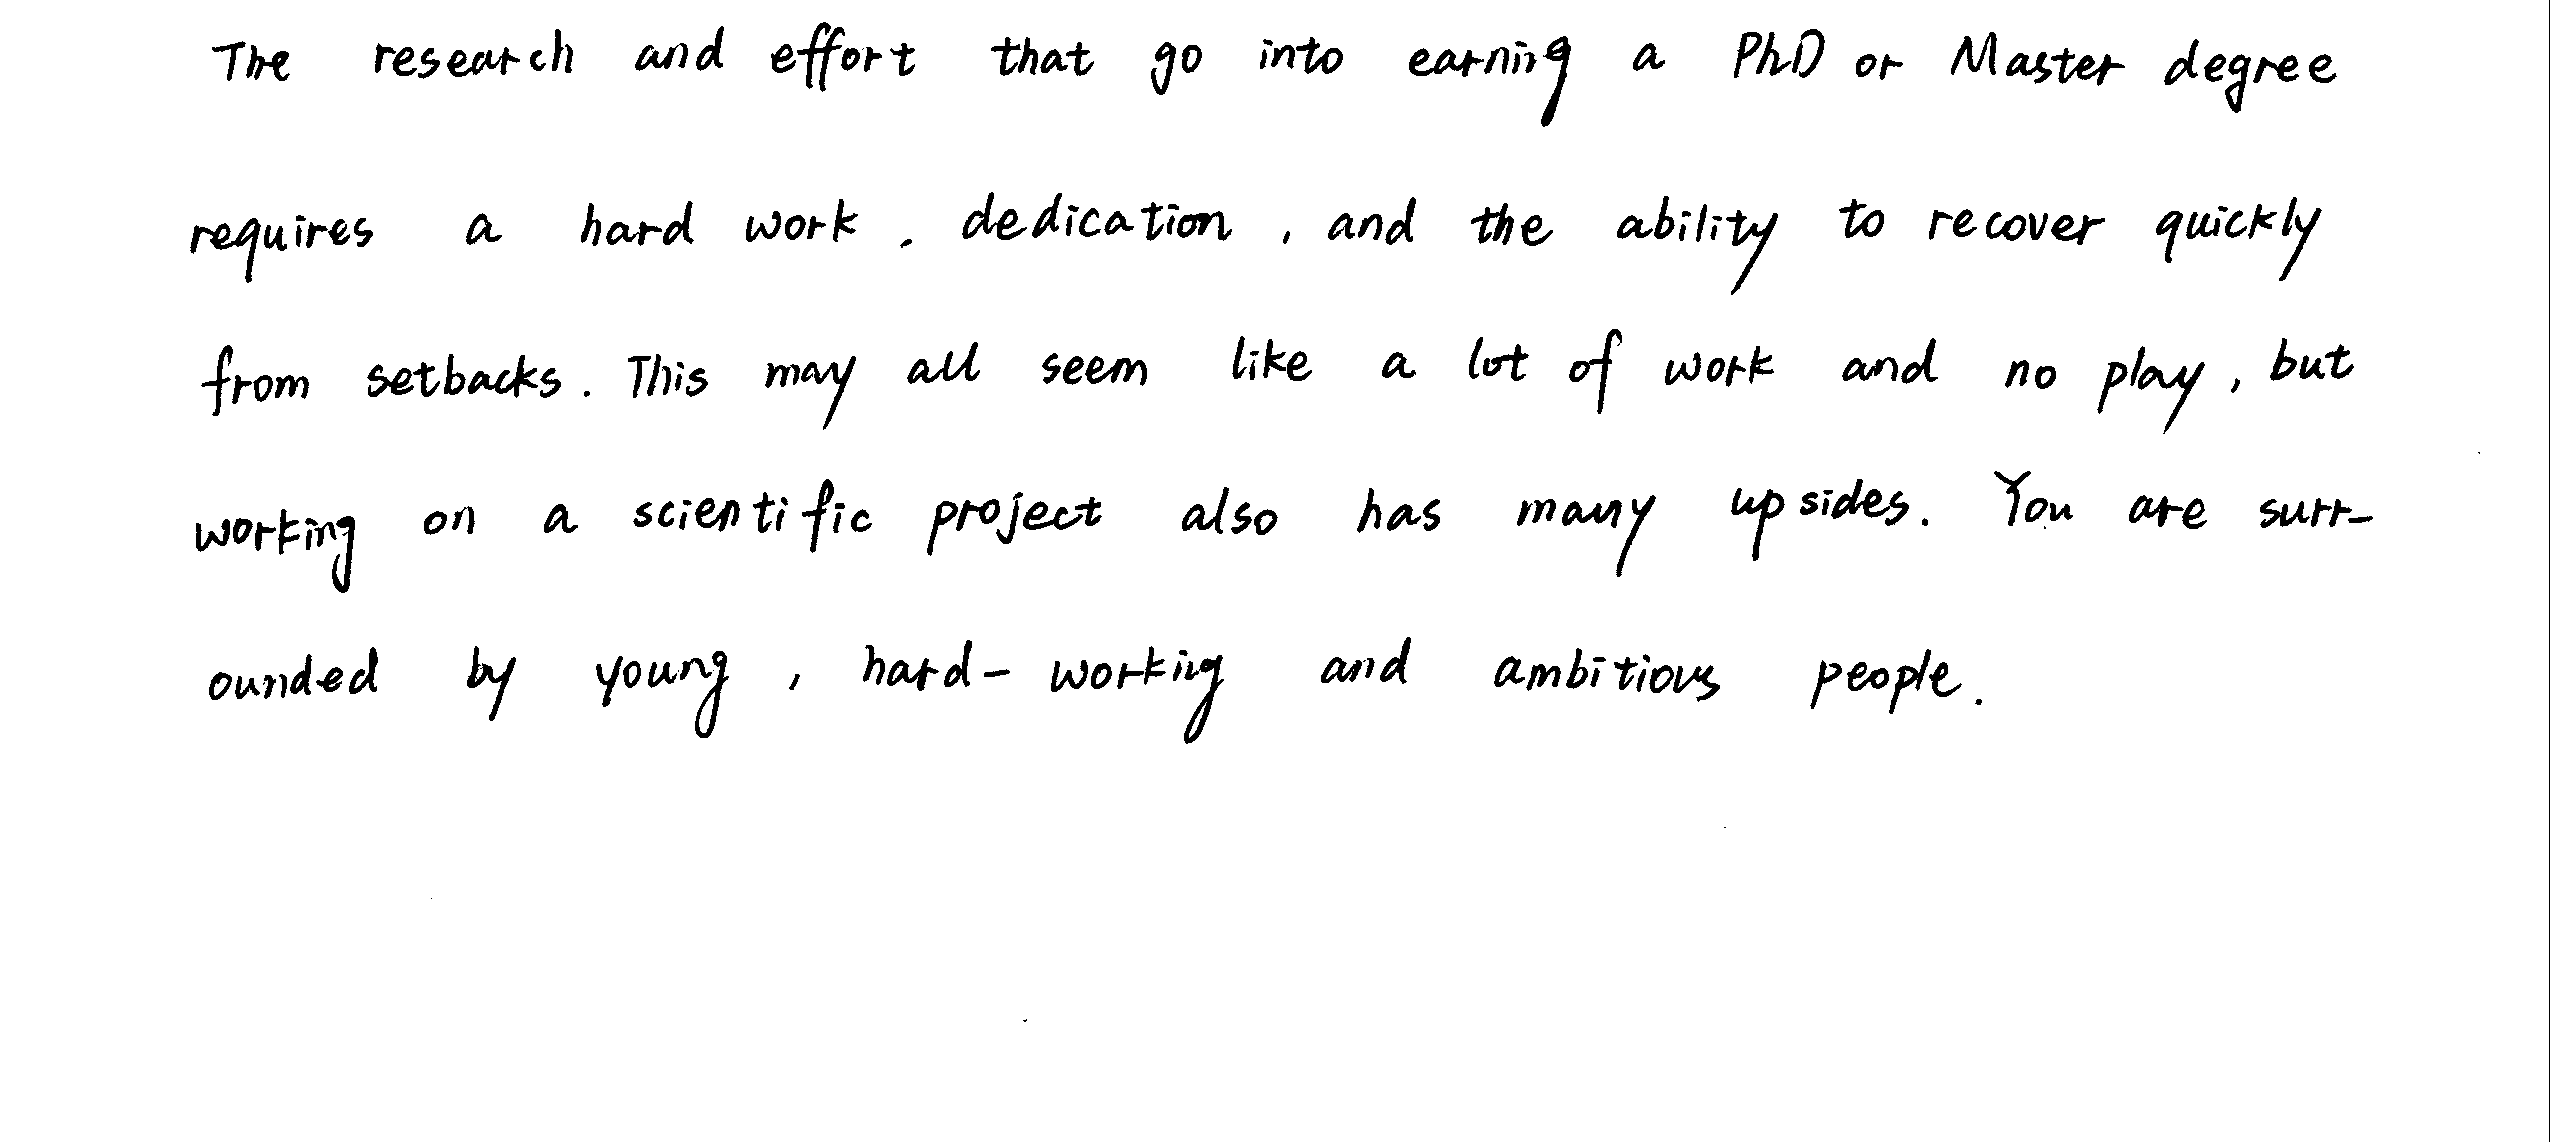 The research and effort that go into earning a PhD or Master degree
requires a hard work, dedication, and the ability to recover quickly
from setbacks. This may all seem like a lot of work and no play, but
working on a scientific project also has many upsides. You are surr-
ounded by young, hard-working and ambitious people.